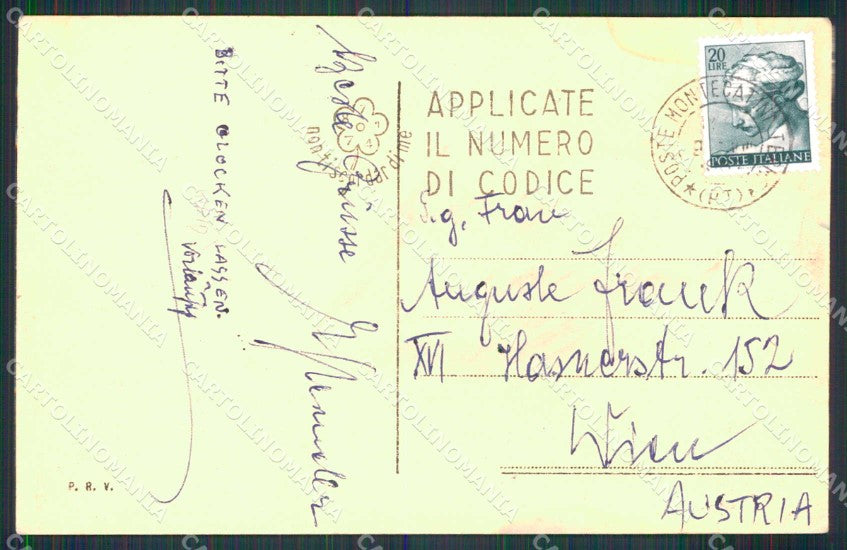 BITTE GLOCKEN LASSEN.
vorläufig
Beste Grüsse
nonti scordar di me
APPLICATE
IL NUMERO
DI CODICE
20
LIRE
POSTE ITALIANE
POSTE MONTECATINI TERME
(PT)
S.g. Frau
Auguste Franck
XVI Hasnerstr. 152
Wien
AUSTRIA
P. R. V.
CARTOLINOMANIA